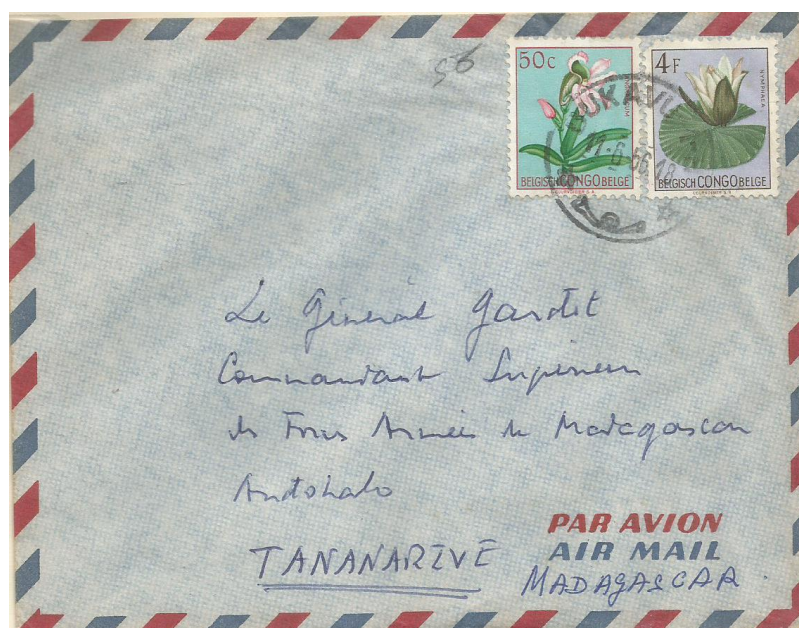 56
50c
4F
NYMPHAEA
BELGISCH CONGO BELGE
BELGISCH CONGO BELGE
BUKAVU
11-6-56-18
Le Général Gardet
Commandant Supérieur
des Forces Armées de Madagascar
Andohalo
TANANARIVE
PAR AVION
AIR MAIL
MADAGASCAR